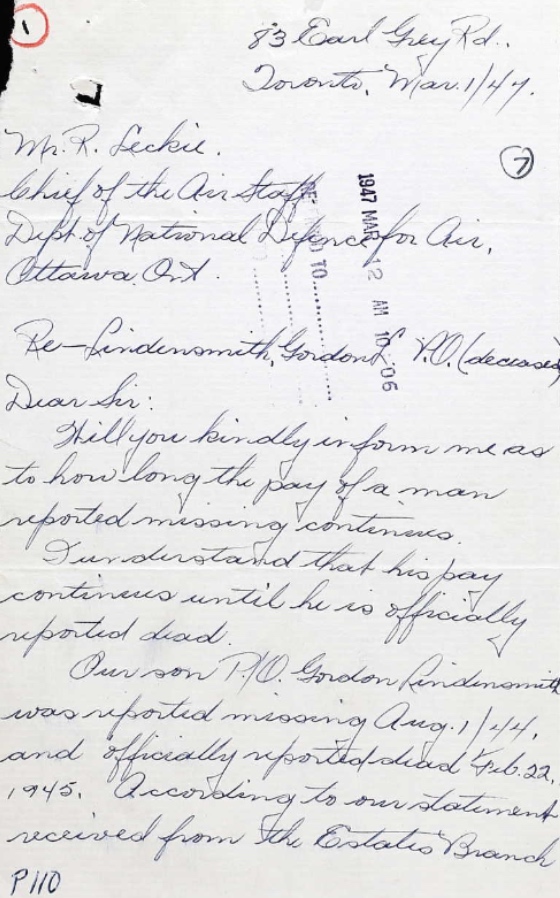 1
83 Earl Grey Rd.,
Toronto, Mar. 1/47.
7
Mr. R. Leckie.
Chief of the Air Staff
Dept. of National Defence for Air,
Ottawa. Ont.
TO
1947 MAR 12 AM 10 06
Re- Lindensmith, Gordon L P.O. (deceased)
Dear Sir:
Will you kindly inform me as
to how long the pay of a man
reported missing continues.
I understand that his pay
continues until he is officially
reported dead.
Our son P/O. Gordon Lindensmith
was reported missing Aug. 1/44,
and officially reported dead Feb. 22,
1945. According to our statement
received from the Estates Branch
P110